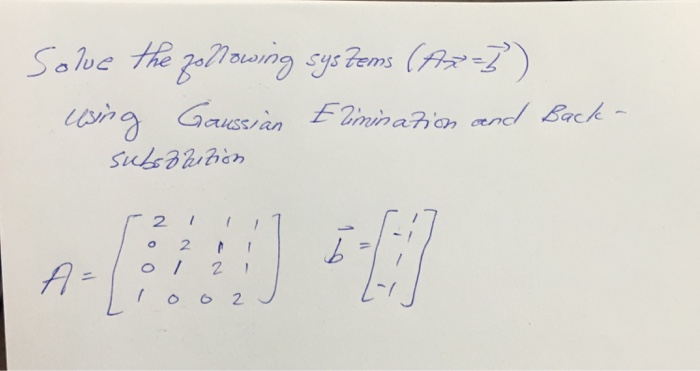 Solve the following systems (Ax⃗ = b⃗)
using Gaussian Elimination and Back-
substitution
A = [2 1 1 1
0 2 1 1
0 1 2 1
1 0 0 2]
b⃗ = [1
-1
1
-1]